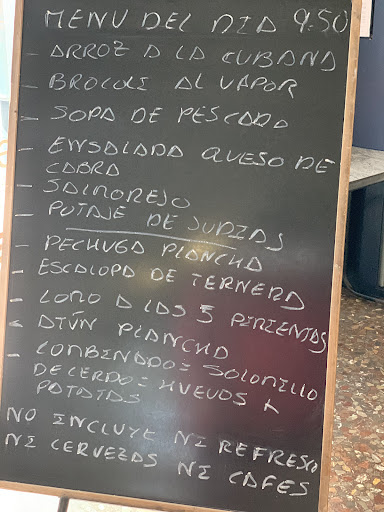 MENU DEL DIA 9.50
- ARROZ A LA CUBANA
- BROCOLI AL VAPOR
- SOPA DE PESCADO
- ENSALADA QUESO DE
CABRA
- SALMOREJO
- POTAJE DE JUDIAS
- PECHUGA PLANCHA
- ESCALOPA DE TERNERA
- LOMO A LAS 5 PIMIENTAS
- ATÚN PLANCHA
- COMBINADO: SOLOMILLO
DE CERDO: HUEVOS +
PATATAS
NO INCLUYE NI REFRESCO
NI CERVEZAS NI CAFES